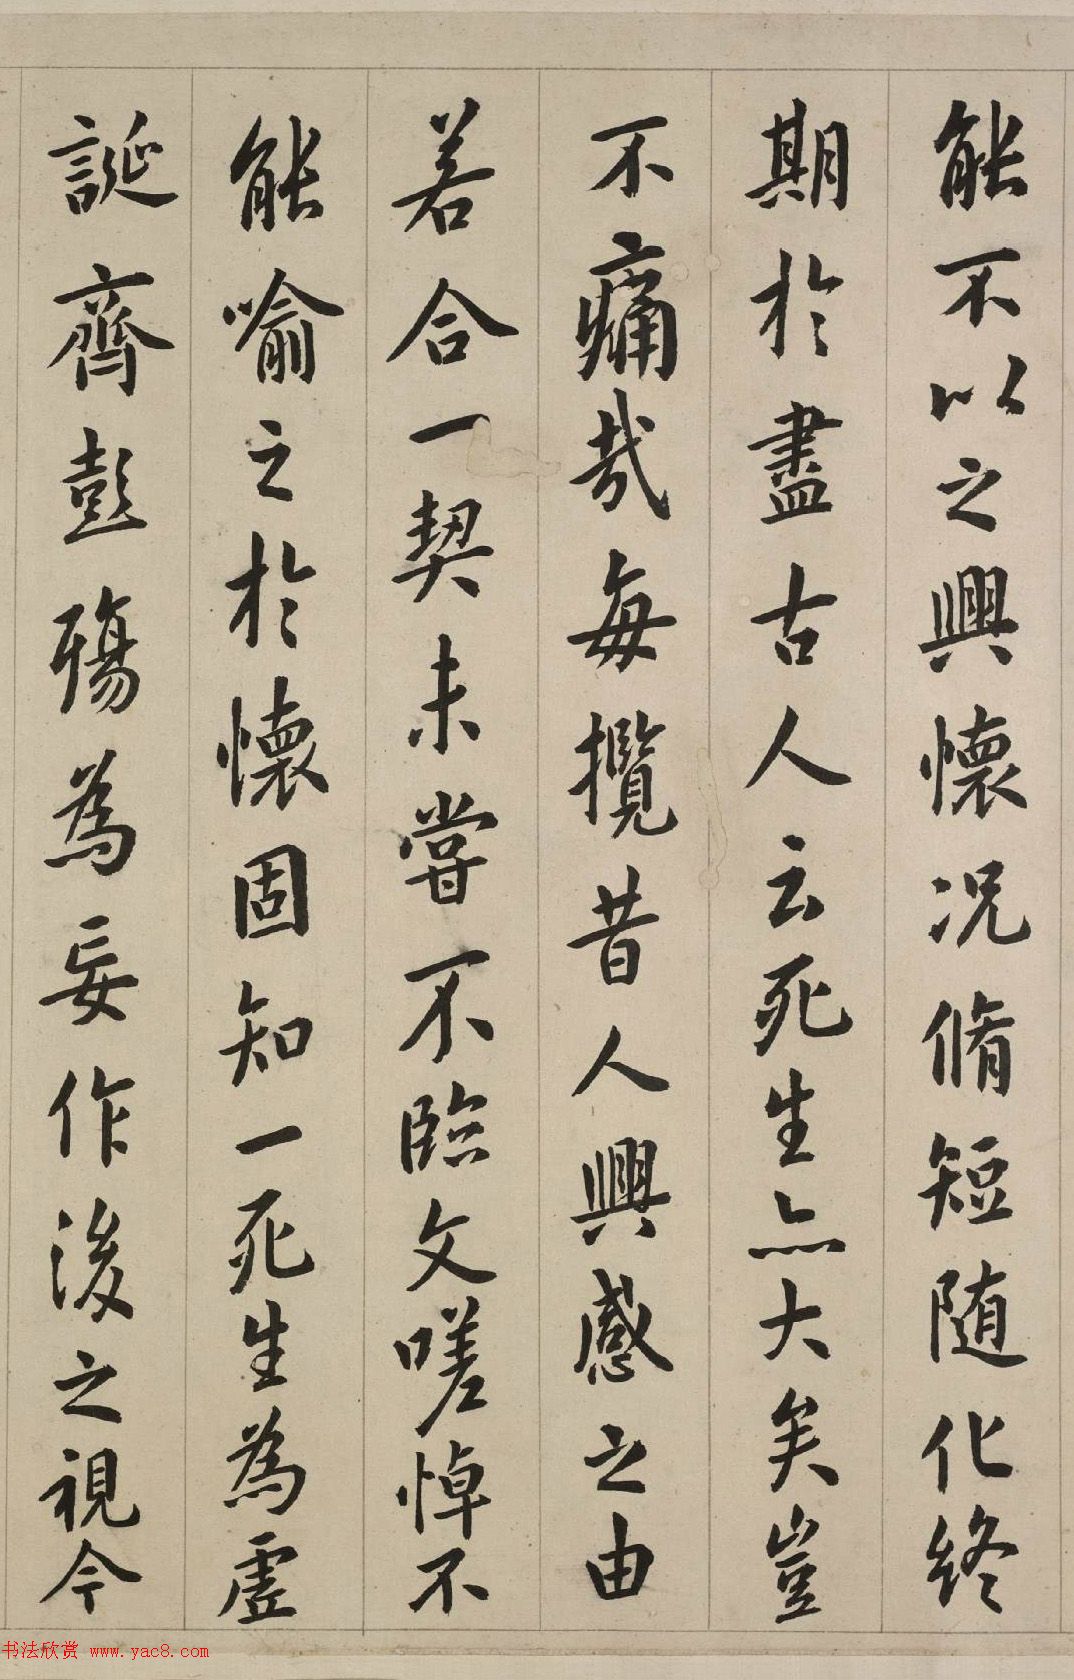 能不以之興懷况脩短随化終
期於盡古人云死生亦大矣豈
不痛哉每攬昔人興感之由
若合一契未嘗不臨文嗟悼不
能喻之於懷固知一死生為虛
誕齊彭殤為妄作後之視今
书法欣赏 www.yac8.com